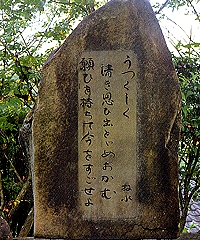 うつくしく
清き思ひ出とゞめおかむ
願ひを持ちて今をすごせよ